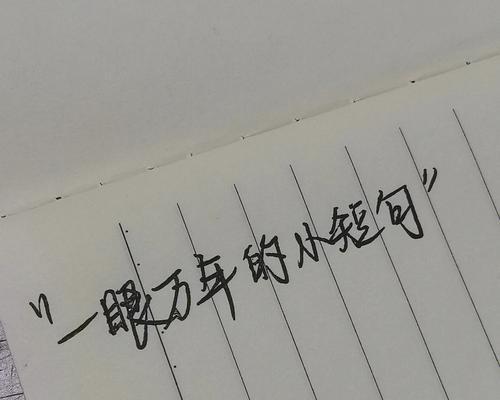 "一眼万年的小短句"